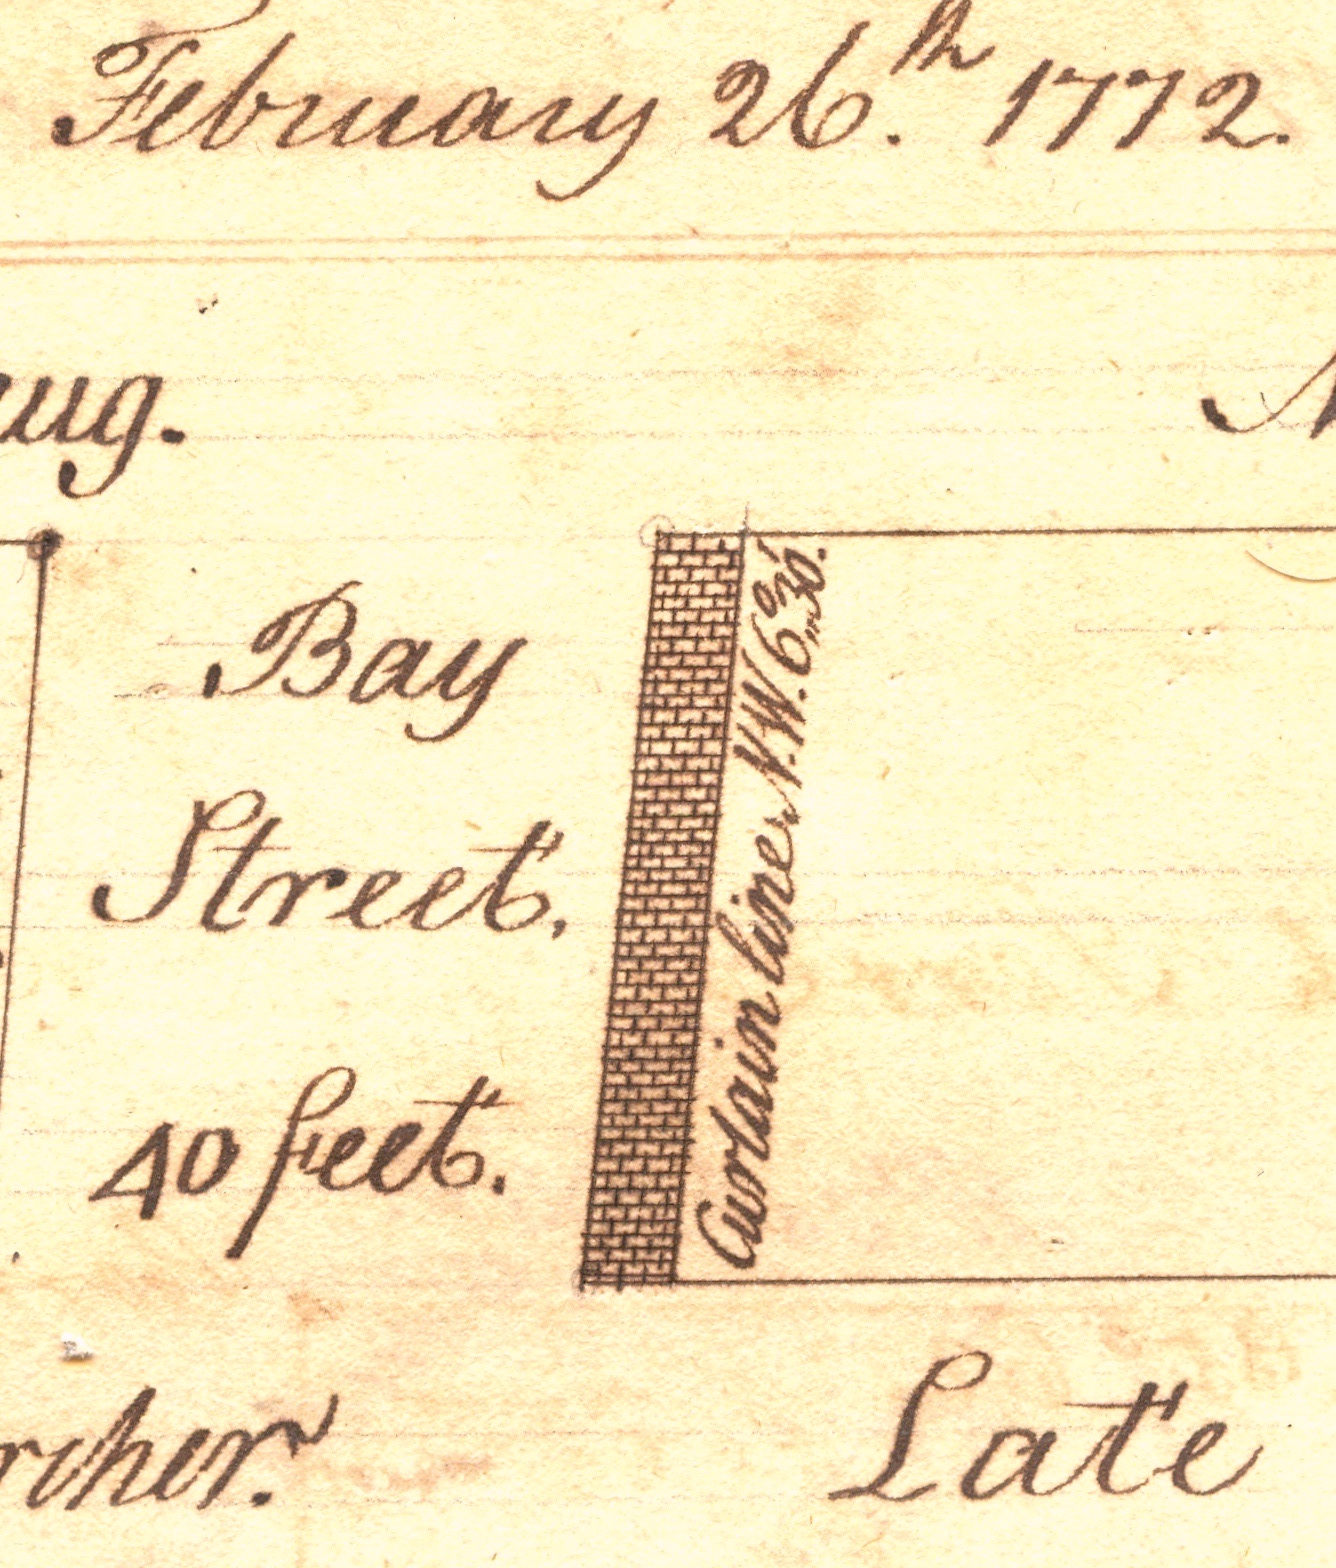 February 26.th 1772.
aug.
Bay
Street,
40 feet.
Curtain line, N.W. 6°,,30'.
rcher.
Late